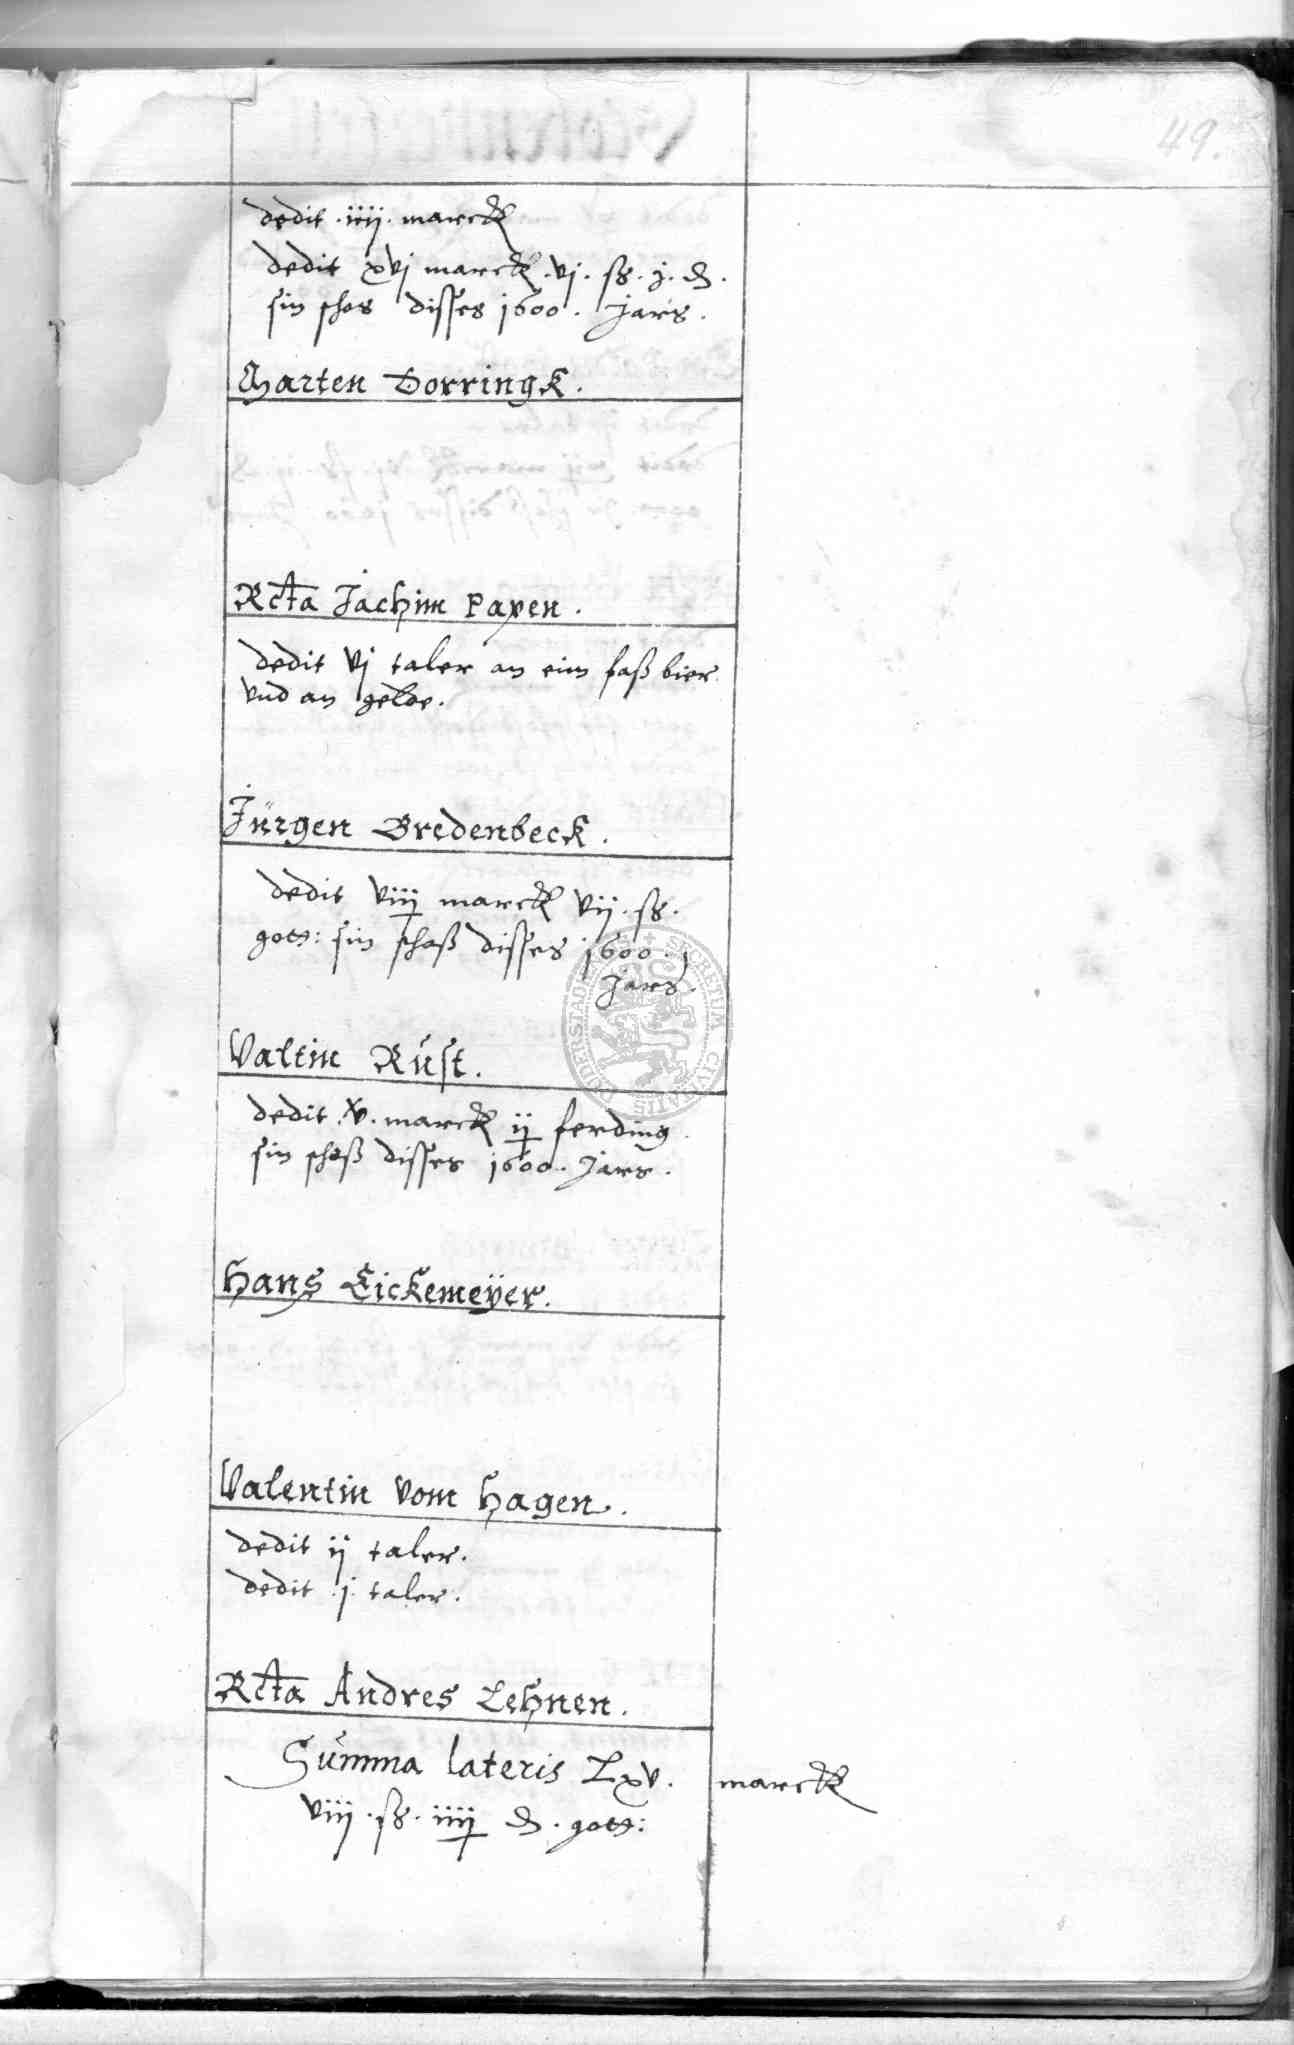 49.
dedit . iiij . marck
dedit xvj marck . vj . ß . j . d .
sin schos disses 1600 . Jars .
Marten Dorringk .
Rcta Jachim Papen .
dedit vj taler an eim faß bier
vnd an gelde .
Jürgen Bredenbeck .
dedit viij marck vij . ß .
gott: sin schoß disses 1600 .
Jars .
Valtin Rust .
dedit . x . marck ij ferding
sin schoß disses 1600 . Jars .
Hans Eickemeÿer .
Valentin vom Hagen .
dedit ij taler .
dedit . j . taler .
Rcta Andres Lehnen .
Summa lateris Lxv . marck
viij . ß . iiij d . gott:
SECRETUM CIVITATIS DUDERSTADENSIS